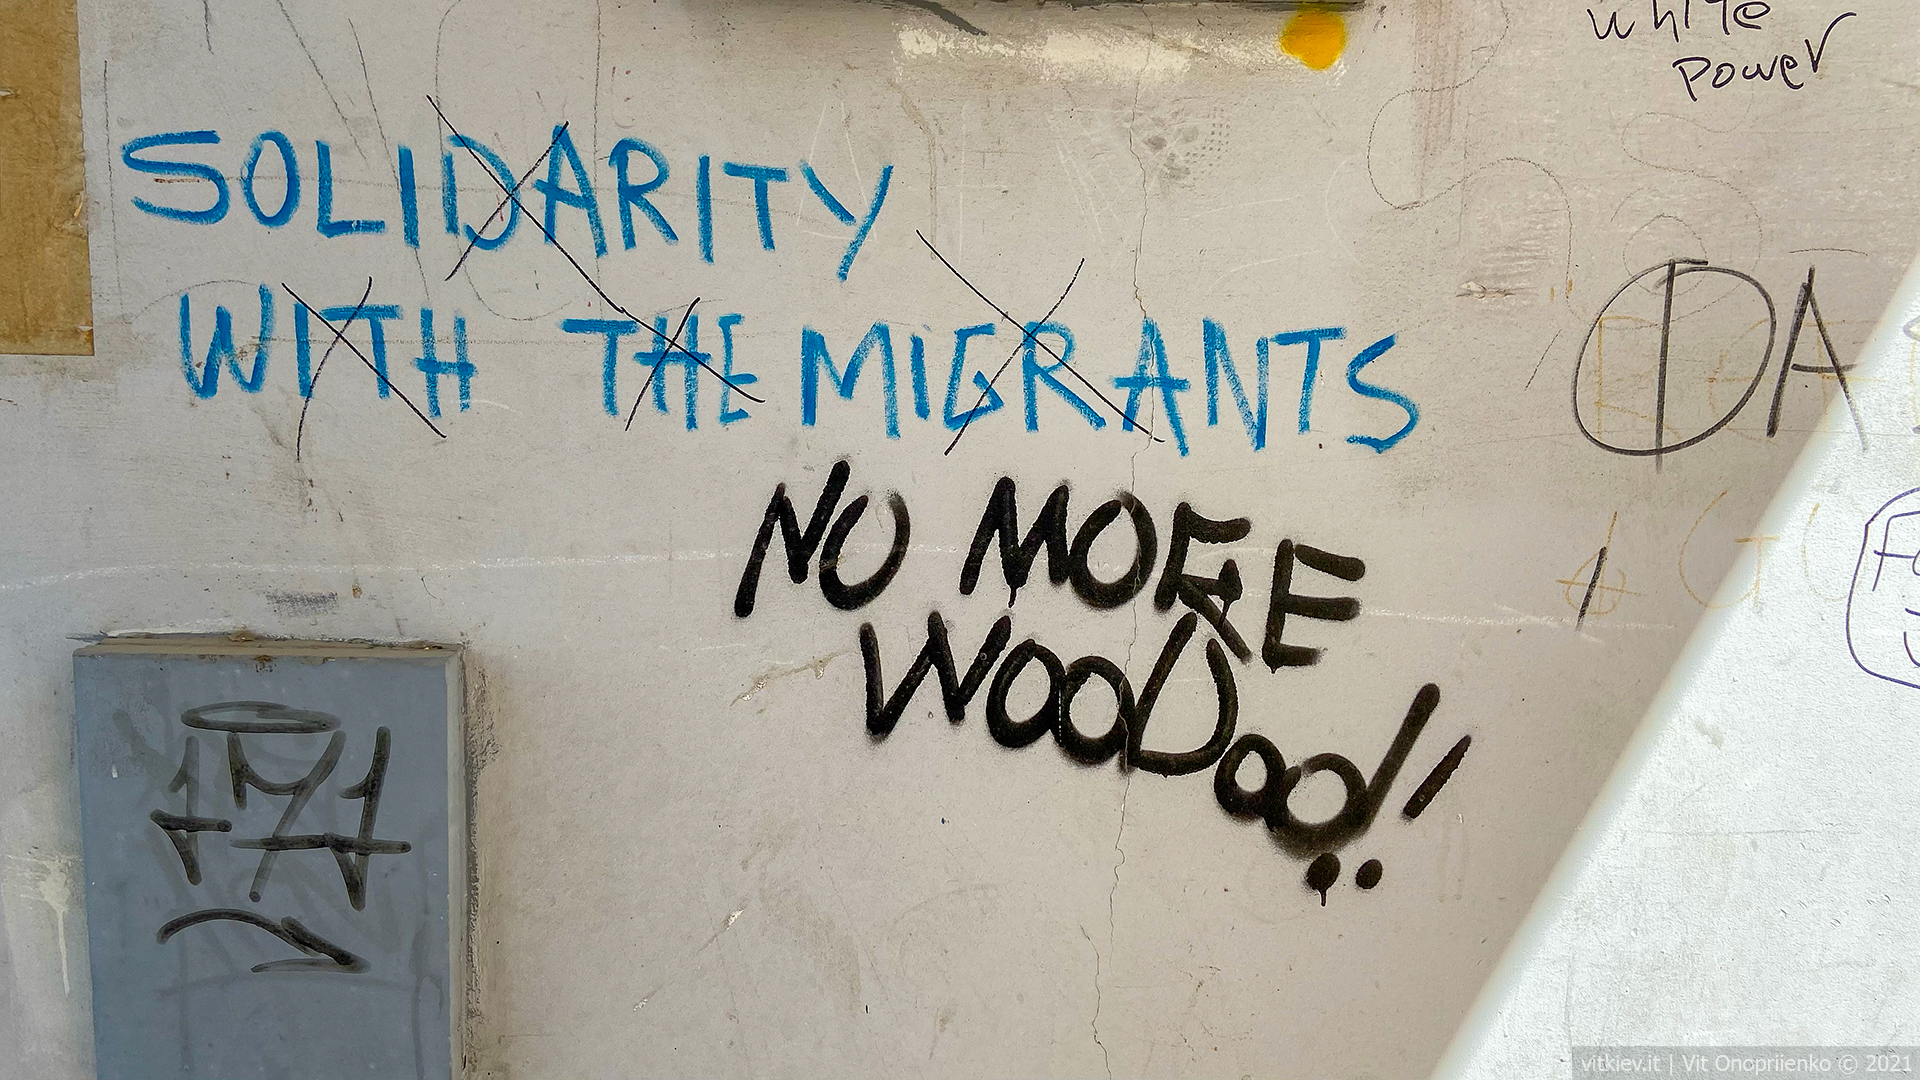 white
power
SOLIDARITY
WITH THE MIGRANTS
DA
NO MORE
WOODOO!!
171
vitkiev.it | Vit Onopriienko © 2021